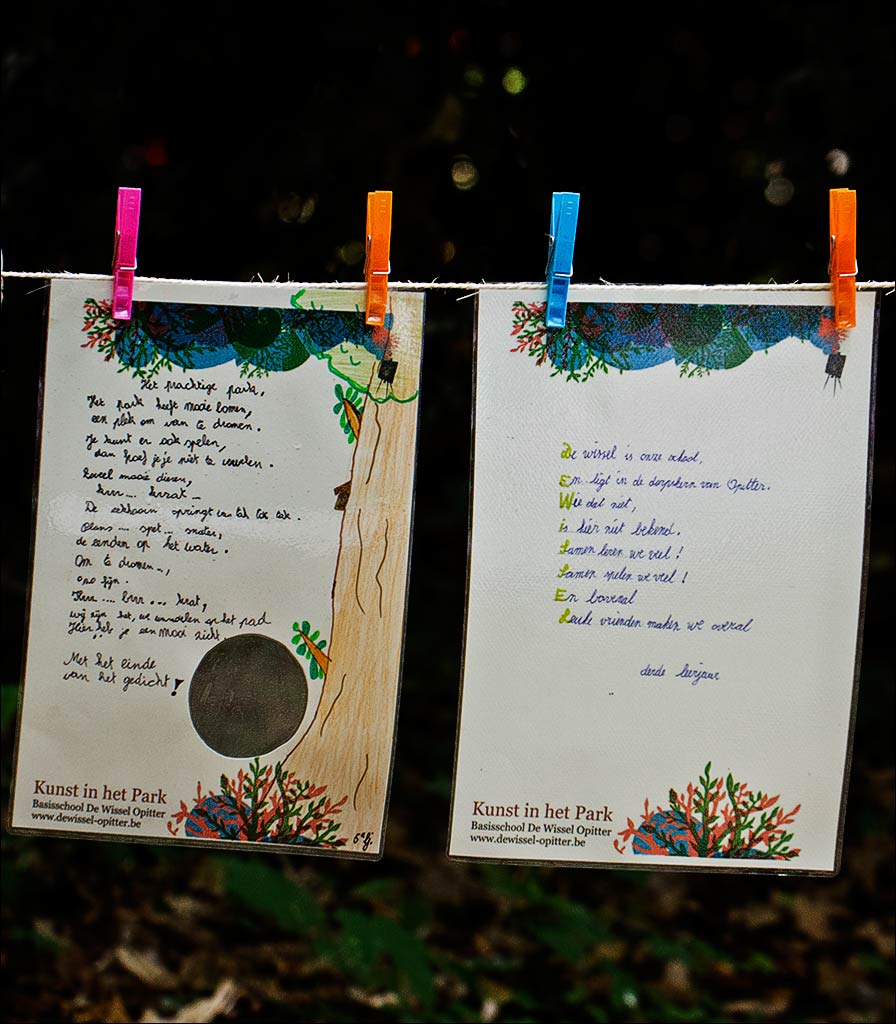 Het prachtige park,
Het park heeft mooie bomen,
een plek om van te dromen.
Je kunt er ook spelen,
dan hoef je je niet te vervelen.
Zoveel mooie dieren,
krrr .... krrat ...
De eekhoorn springt van tak tot tak.
Plons .... spet ... snater,
de eenden op het water.
Om te dromen...,
zo fijn.
krat,
wij zijn het, we wandelen op het pad
Hier heb je een mooi zicht
Met het einde
van het gedicht!
Kunst in het Park
Basisschool De Wissel Opitter
www.dewissel-opitter.be
De wissel is onze school,
En ligt in de dorpskern van Opitter.
Wie dat niet,
is hier niet bekend.
Samen leren we veel !
Samen spelen we veel !
En bovenal
Leuke vrienden maken we overal
derde leerjaar
Kunst in het Park
Basisschool De Wissel Opitter
www.dewissel-opitter.be